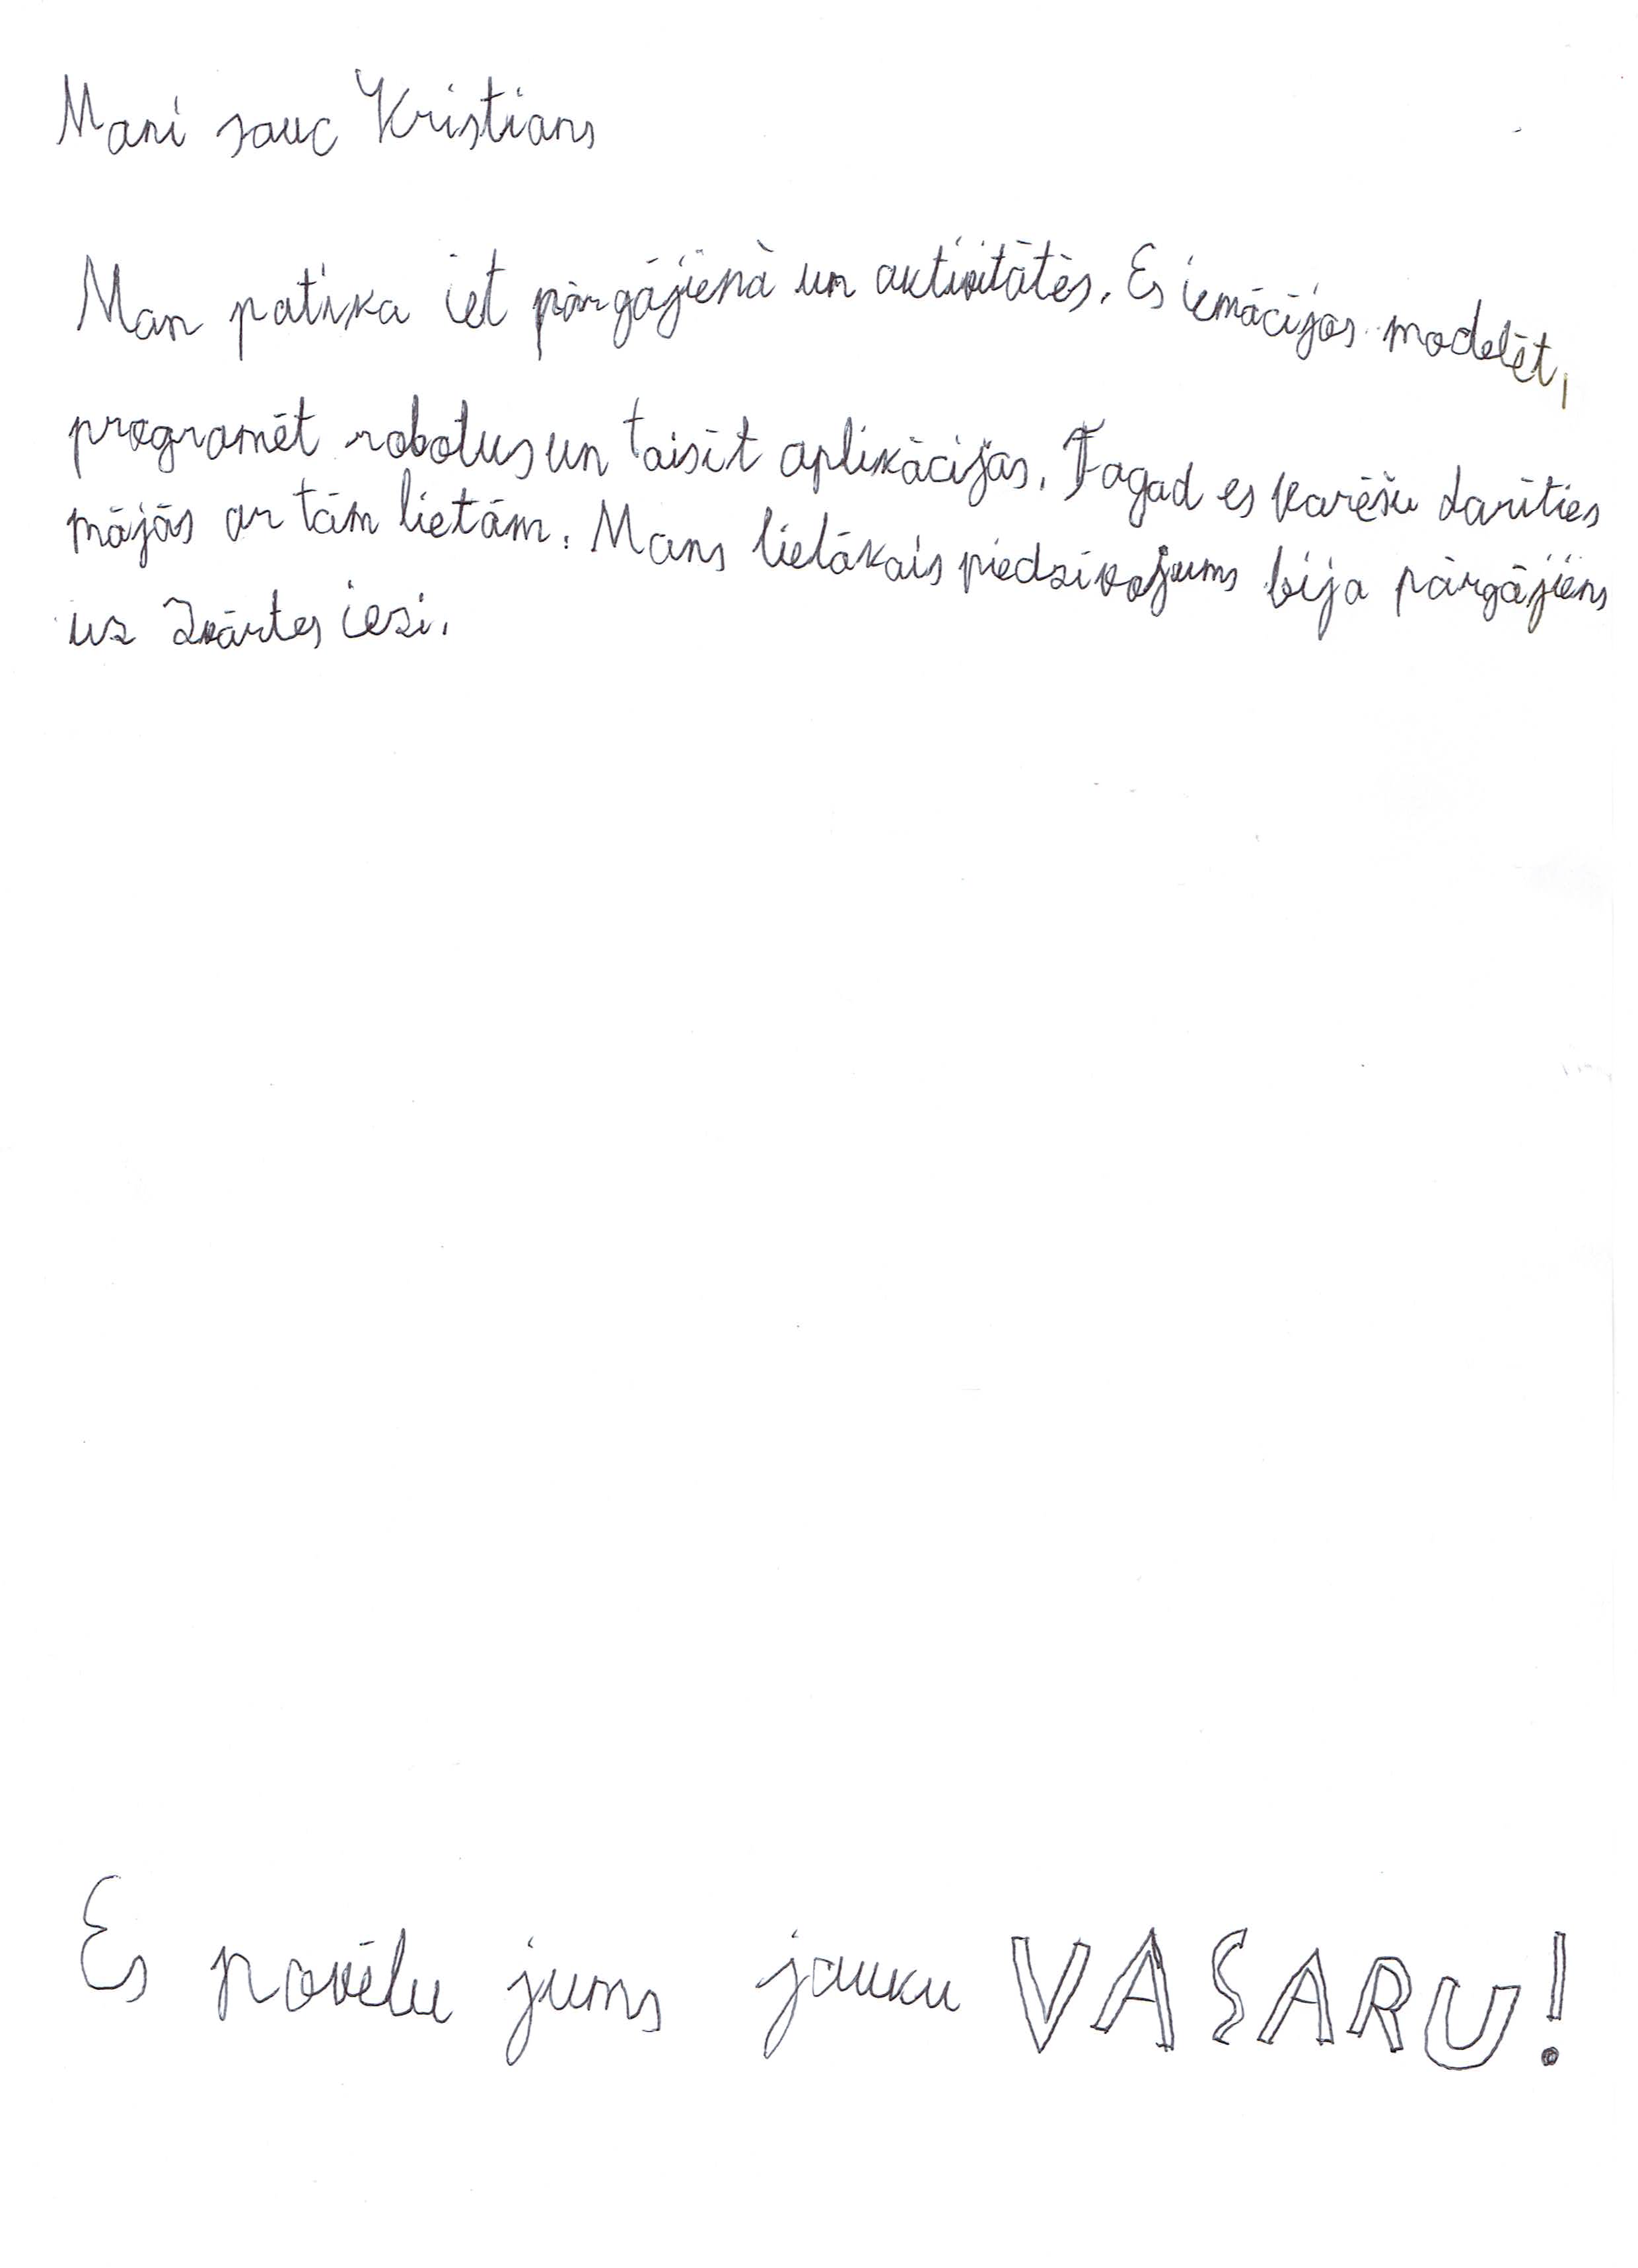 Mani sauc Kristians
Man patika iet pārgājienā un aktivitātēs. Es iemācījos modelēt,
programēt robotus un taisīt aplikācijas. Tagad es varēšu darīties
mājās ar tām lietām. Mans lielākais piedzīvojums bija pārgājiens
uz Zvārtes iezi.
Es novēlu jums jauku VASARU!